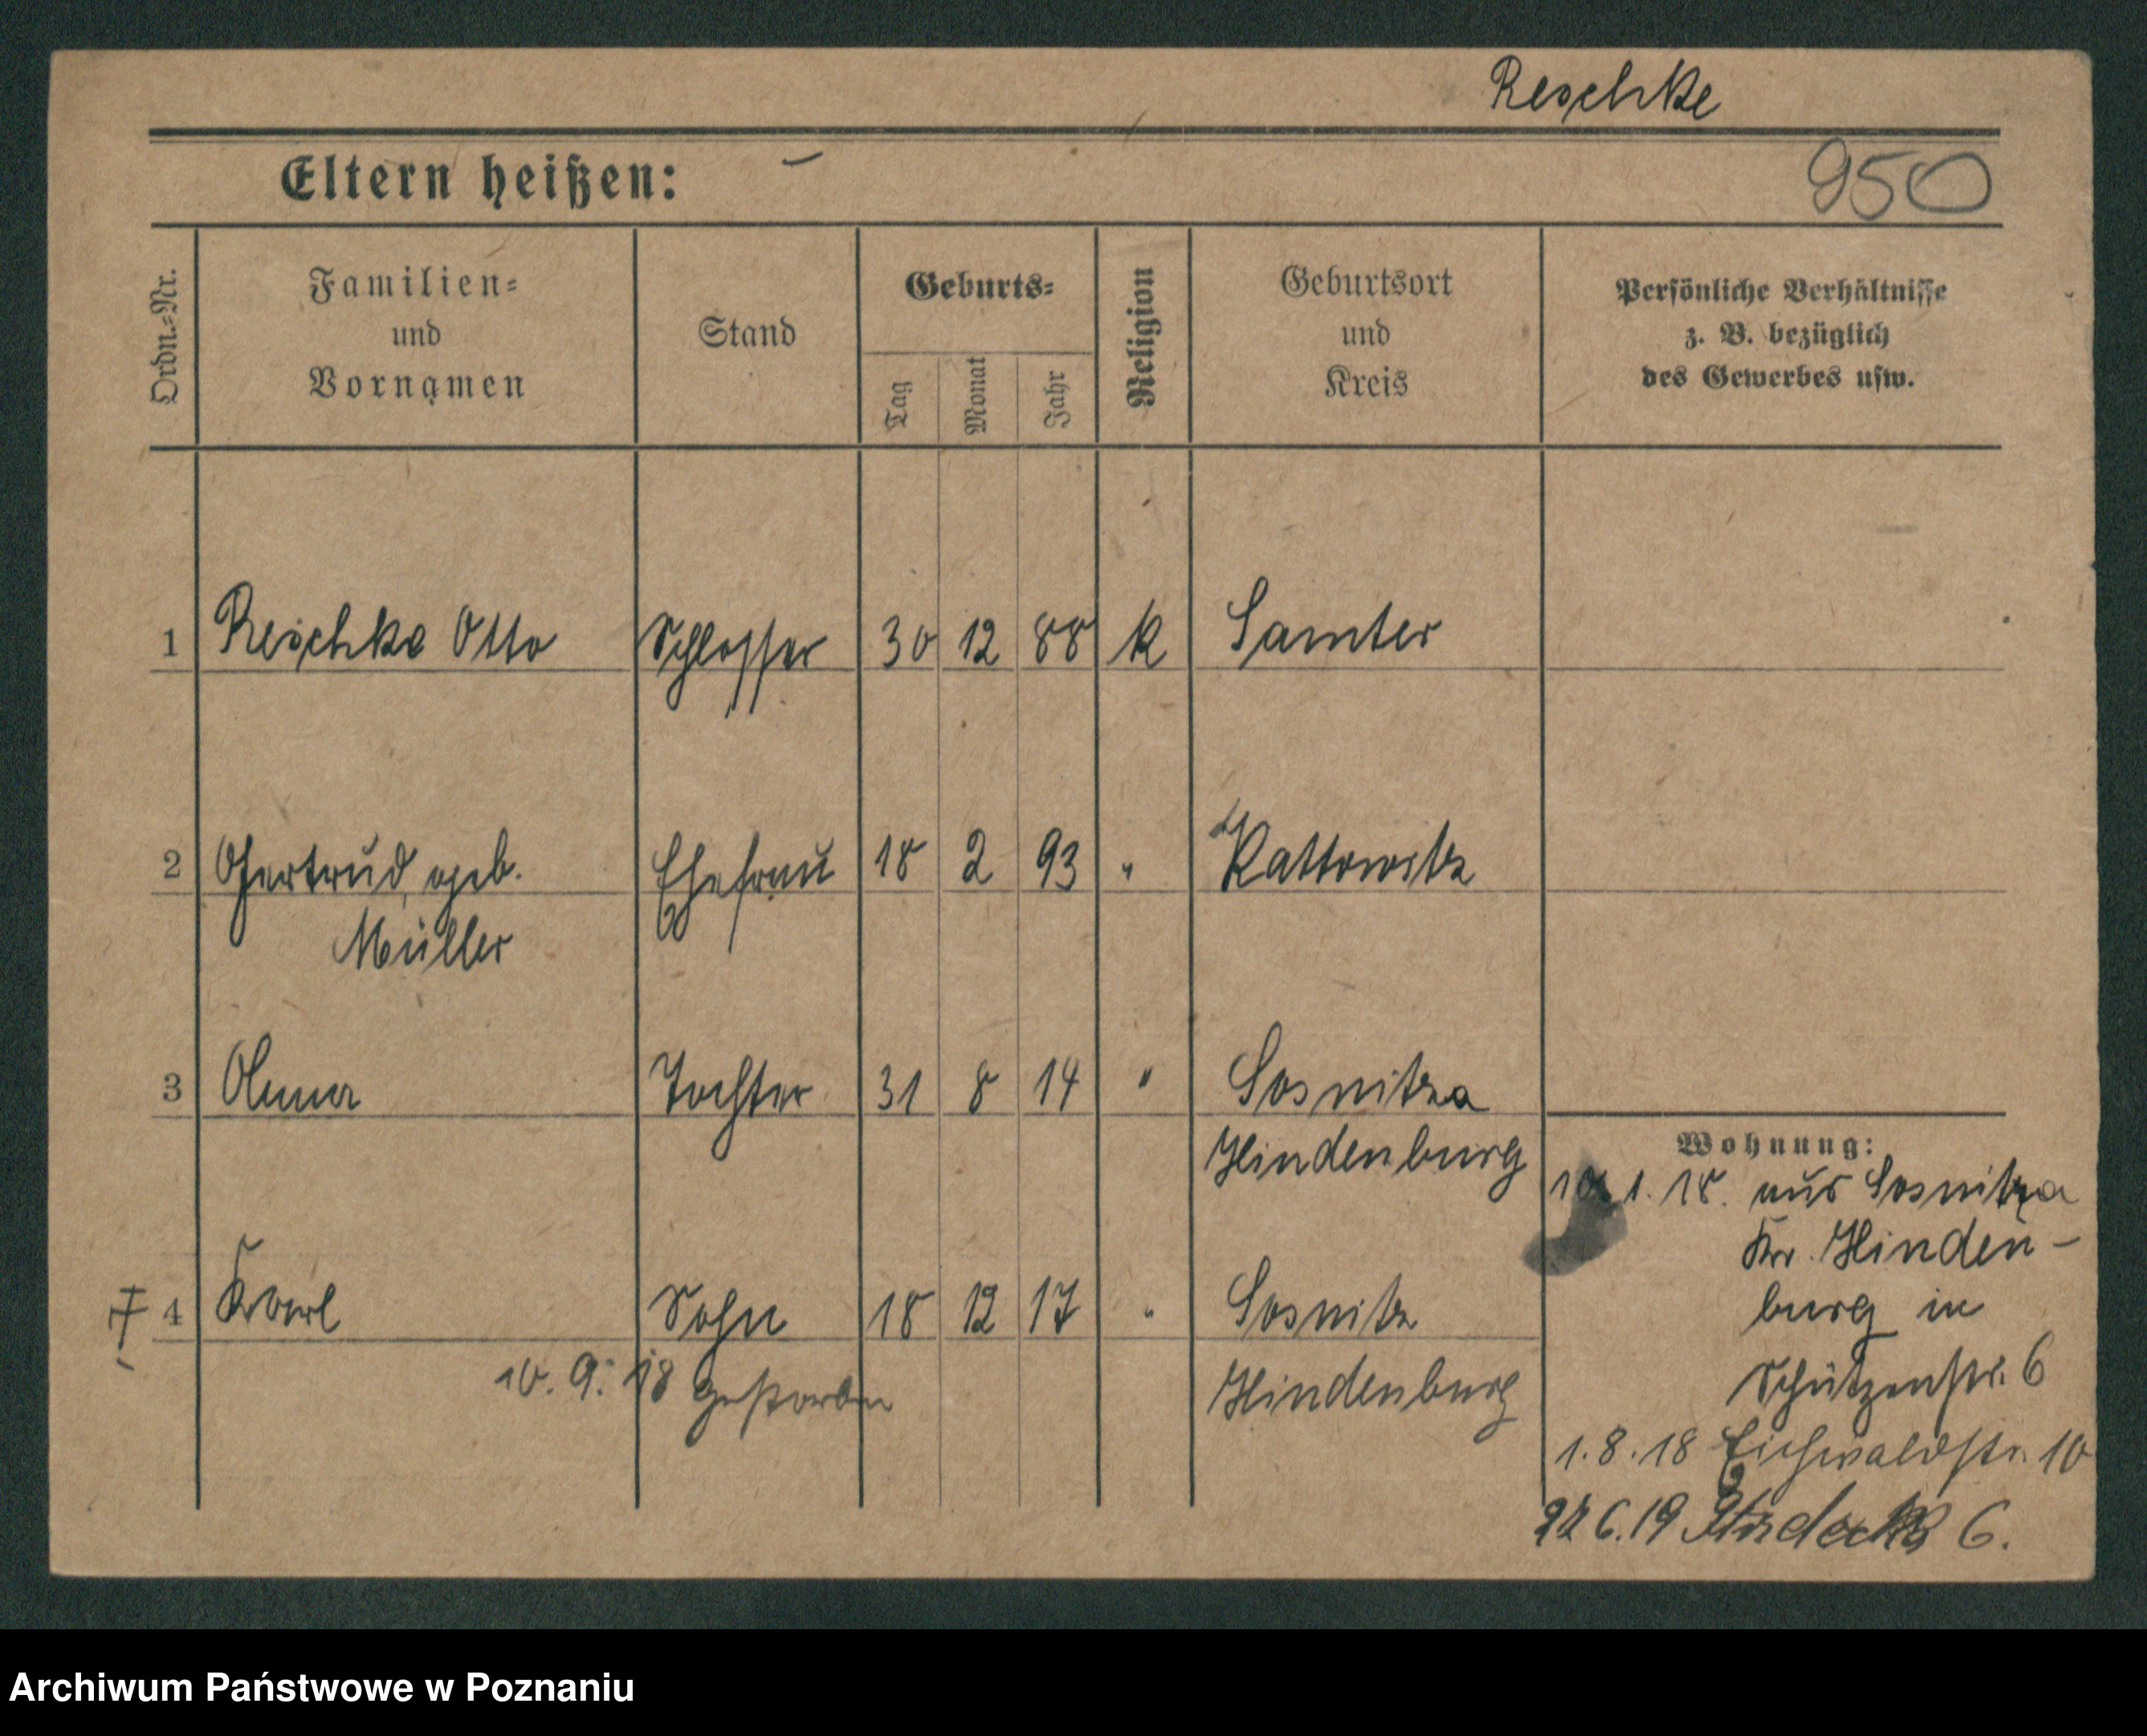 Reschke
Eltern heißen: –
950
Ordn.-Nr.
Familien-
und
Vornamen
Stand
Geburts-
Tag
Monat
Jahr
Religion
Geburtsort
und
Kreis
Persönliche Verhältnisse
z. B. bezüglich
des Gewerbes usw.
1 Reschke Otto Schlosser 30 12 88 k Samter
2 Gertrud geb. Ehefrau 18 2 93 " Kattowitz
Müller
3 Tochter 31 8 14 " Sosnitza
Hindenburg
4 Karl Sohn 18 12 17 " Sosnitz
10. 9. 18 gestorben
Hindenburg
Wohnung:
1. 18. aus Sosnitza
Kr. Hinden-
burg in
Schützenstr. 6
1.8.18 Eichwaldstr. 10
6.19 6.
Archiwum Państwowe w Poznaniu